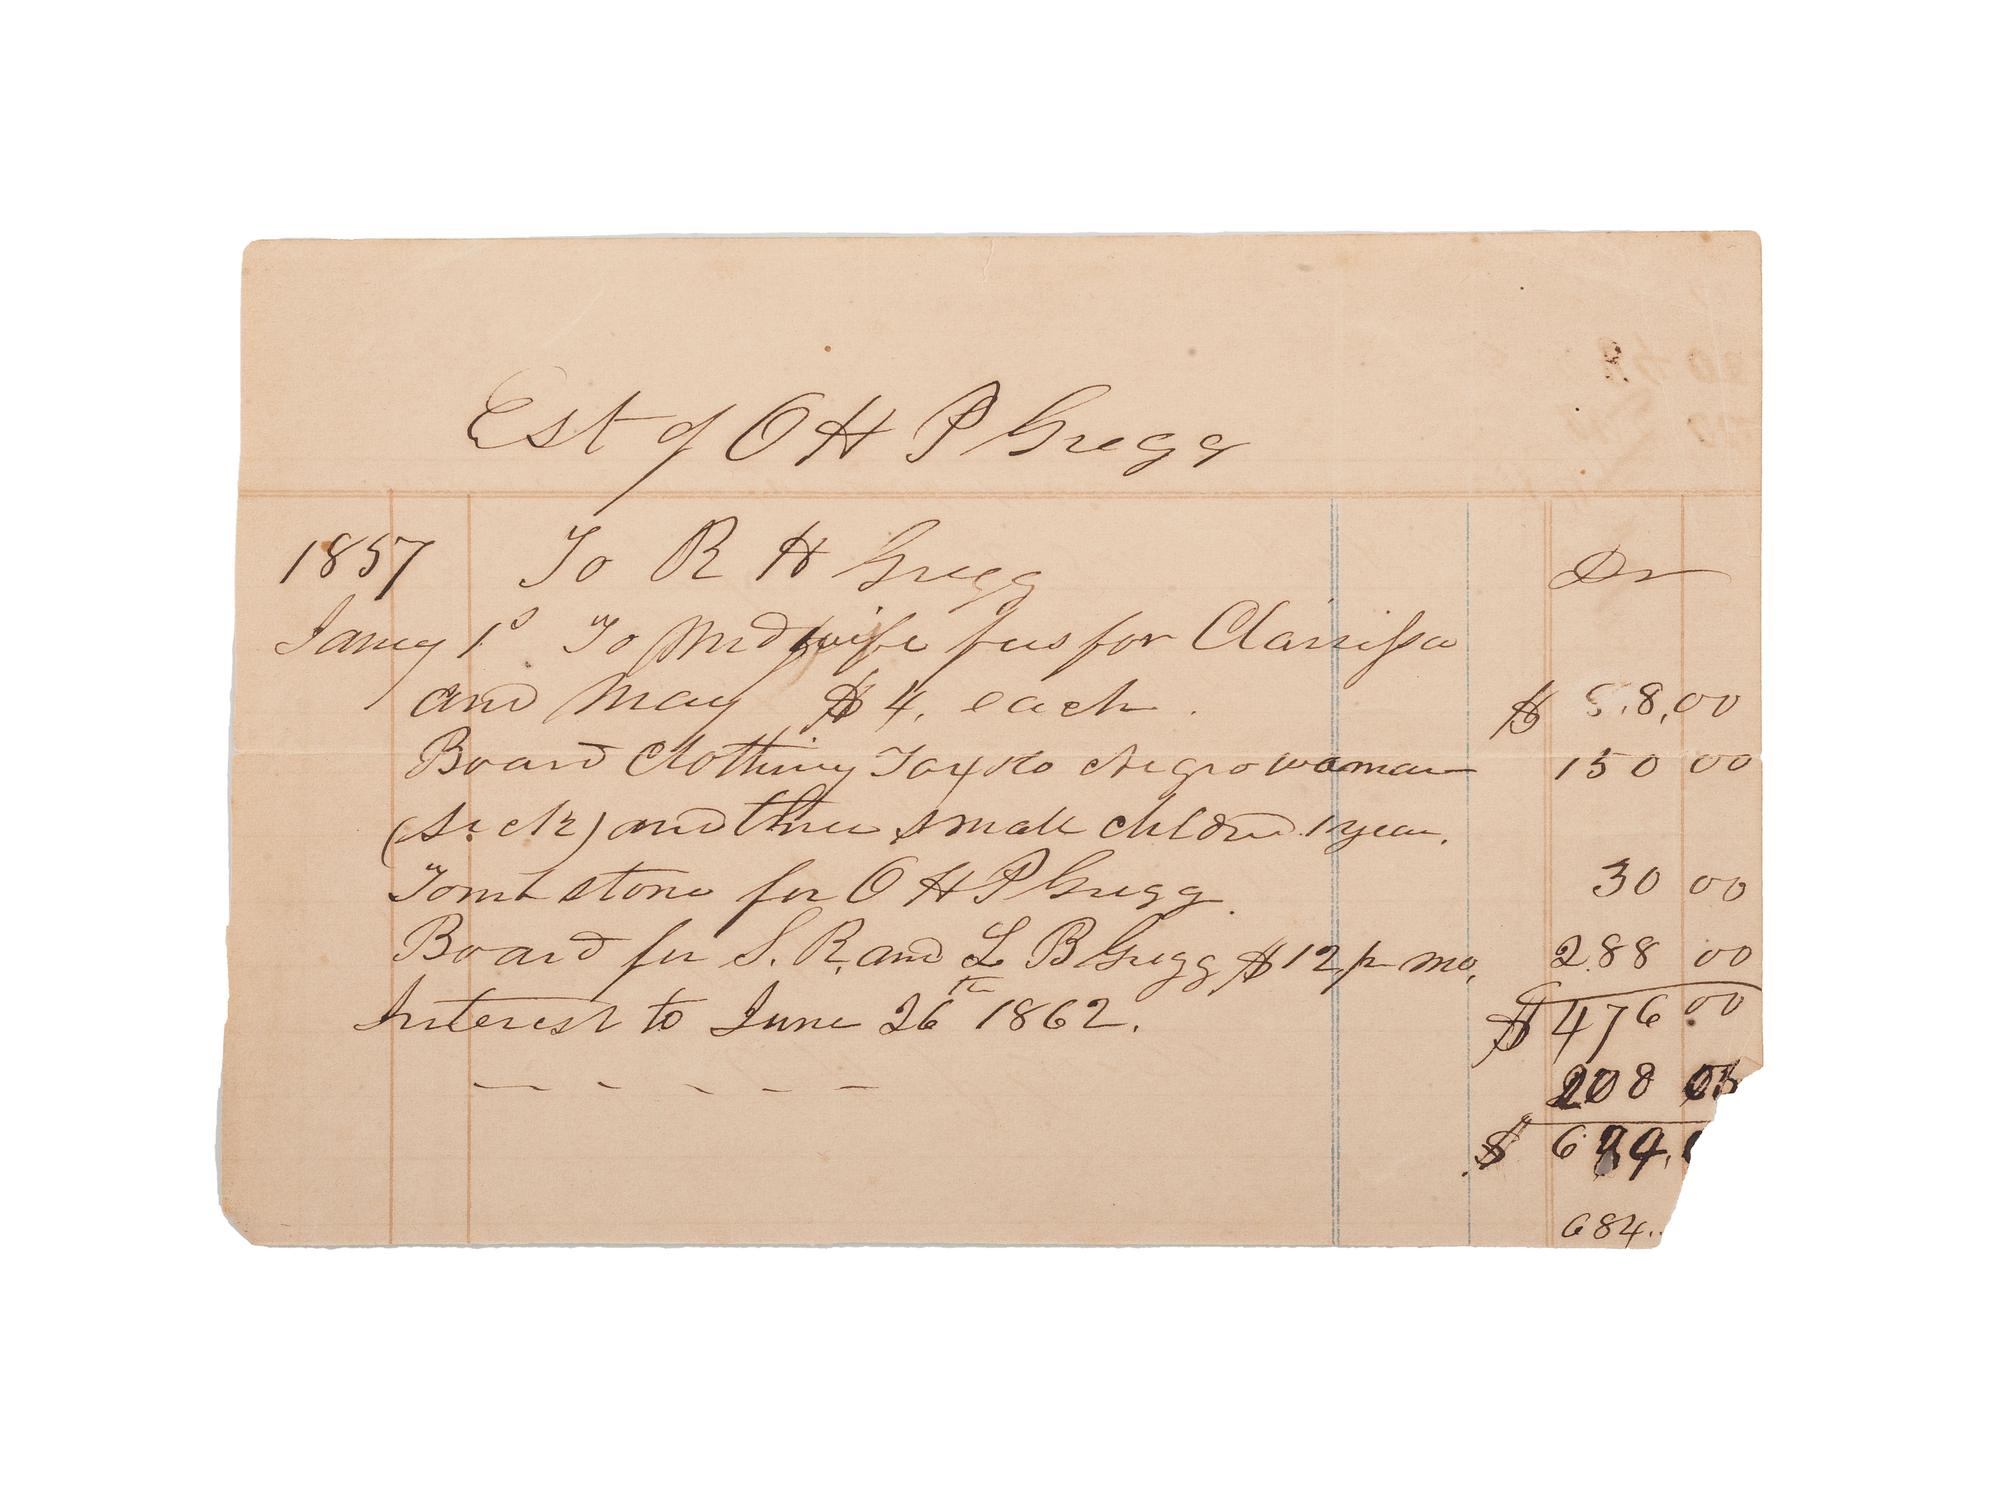 Est of O H P Gregg
1857 To R H Gregg Dr
Jany 1s To Midwife fees for Clarissa
and May $4. each. $ 8.00
Board Clothing Tax &c Negro woman 150 00
(sick) and three small children 1 year.
Tomb stone for O H P Gregg. 30 00
Board for S. R. and L B Gregg $12 p mo. 288 00
Interest to June 26th 1862. $ 476 00
208
$ 684.
684..